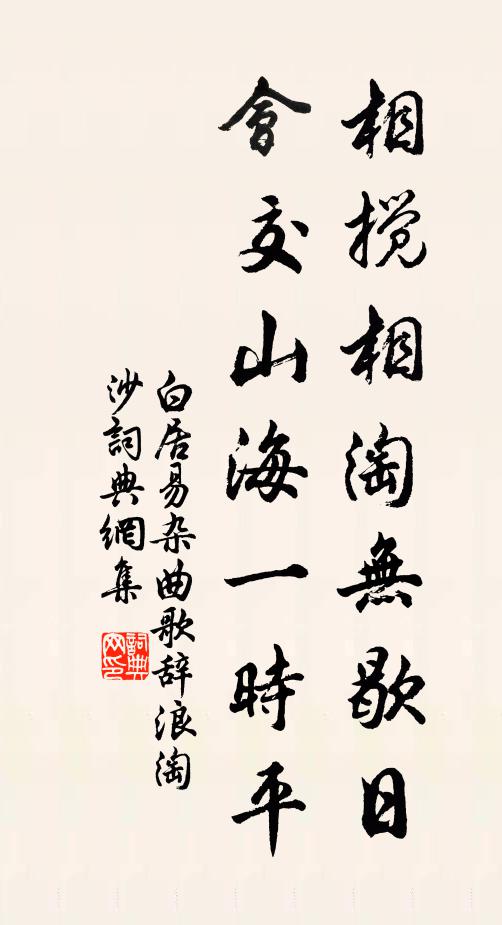 相搅相淘無歇日
會交山海一時平
白居易杂曲歌辞浪淘
沙詞典網集
詞典
网印